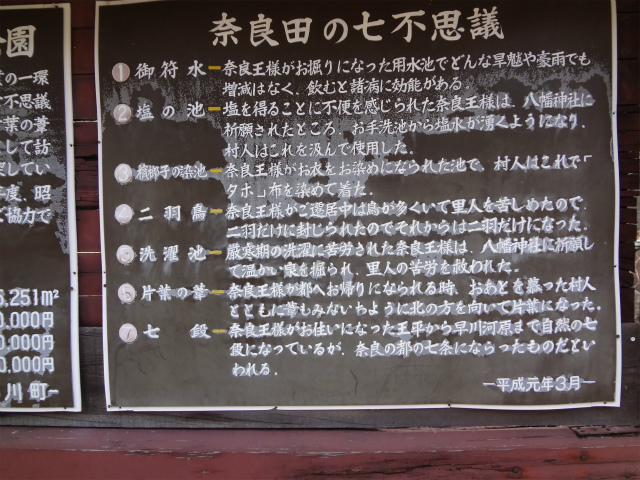 園
の一環
不思議
葉の葦
して訪
てい
年度、昭
ご協力で
6.251m²
0.000円
0.000円
0.000円
川町
奈良田の七不思議
① 御符水ー奈良王様がお掘りになった用水池でどんな旱魃や豪雨でも
増減はなく、飲むと諸病に効能がある.
② 塩の池ー塩を得ることに不便を感じられた奈良王様は、八幡神社に
祈願されたところ、お手洗池から塩水が湧くようになり、
村人はこれを汲んで使用した.
③ 檳榔子の染池ー奈良王様がお衣をお染めになられた池で、村人はこれで「
タホ」布を染めて着た。
④ 二羽烏ー奈良王様がご遷居中は烏が多くいて里人を苦しめたので、
二羽だけに封じられたのでそれからは二羽だけになった.
⑤ 洗濯池ー厳寒期の洗濯に苦労された奈良王様は、八幡神社に祈願し
て温かい泉を掘られ、里人の苦労を救われた.
⑥ 片葉の葦ー奈良王様が都へお帰りになられる時、おあとを慕った村人
とともに葦もみないちように北の方を向いて片葉になった.
⑦ 七段ー奈良王様がお住いになった王平から早川河原まで自然の七
段になっているが、奈良の都の七条にならったものだとい
われる.
ー平成元年3月ー